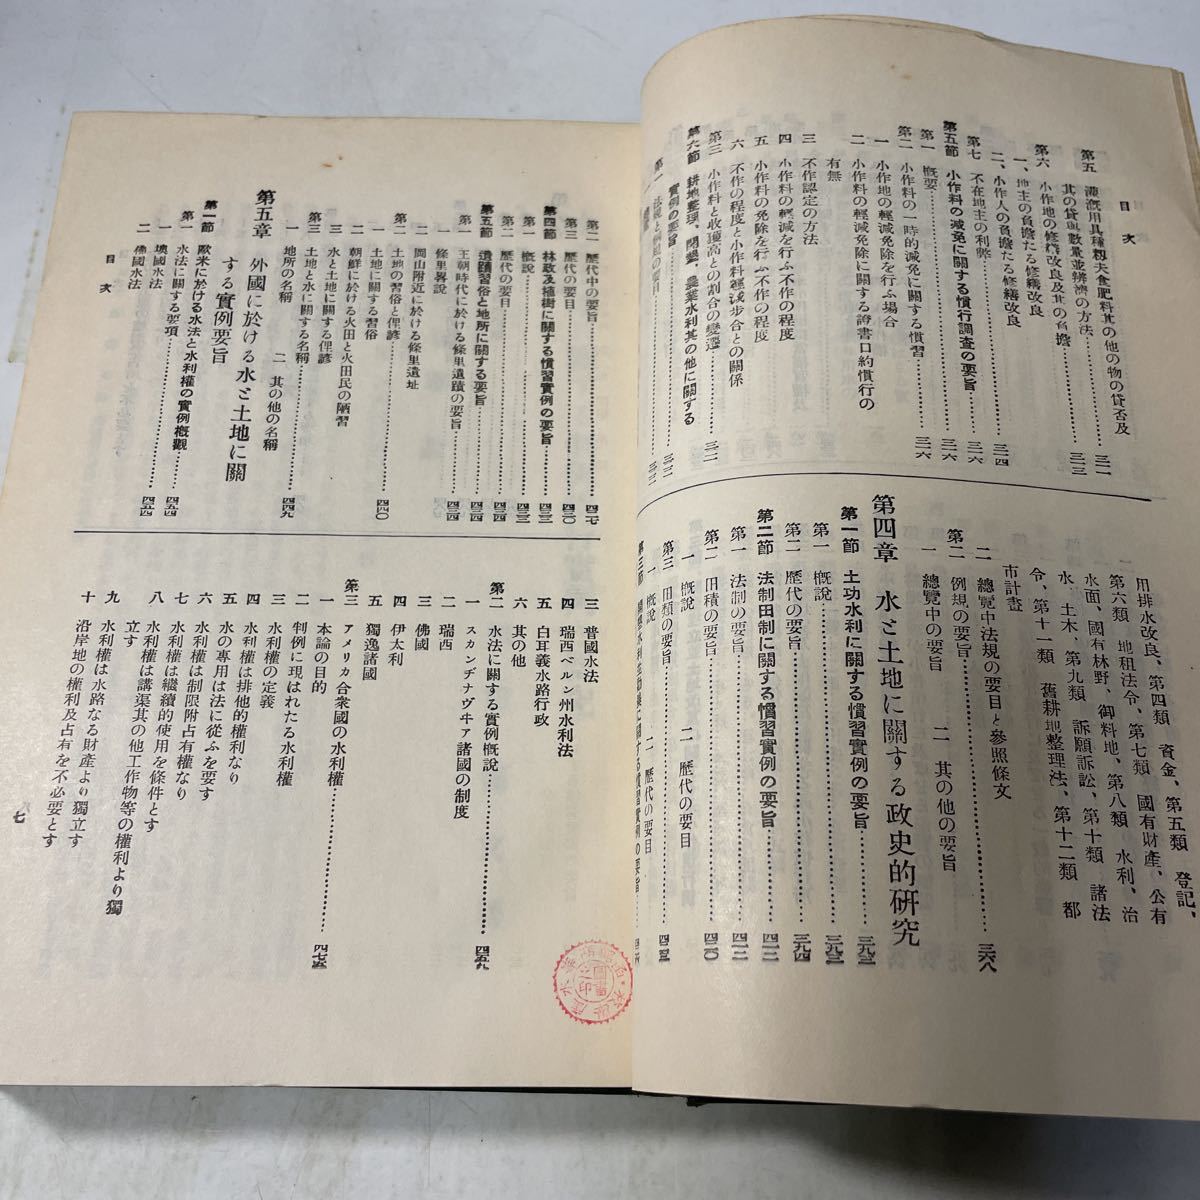 目次
第五 灌漑用具種籾夫食肥料其の他の物の貸否及
其の貸與數量並辨濟の方法………三一一
第六 小作地の修繕改良及其の負擔………三一三
一、地主の負擔たる修繕改良
二、小作人の負擔たる修繕改良
第七 不在地主の利弊………三一四
第五節 小作料の減免に關する慣行調査の要旨………三一六
第一 概要………三一六
第二 小作料の一時的減免に關する慣習………三一六
一 小作地の輕減免除を行ふ場合
二 小作料の輕減免除に關する證書口約慣行の
有無
三 不作認定の方法
四 小作料の輕減を行ふ不作の程度
五 小作料の免除を行ふ不作の程度
六 不作の程度と小作料輕減步合との關係
第三 小作料と收獲高との割合の變遷………三二一
第六節 耕地整理、開墾、農業水利其の他に關する
實例の要旨
用排水改良、第四類 資金、第五類 登記、
第六類 地租法令、第七類 國有財產、公有
水面、國有林野、御料地、第八類 水利、治
水 土木、第九類 訴願訴訟、第十類 諸法
令、第十一類 舊耕地整理法、第十二類 都
市計畫
二 總覽中法規の要目と參照條文
第二 例規の要旨………三六八
一 總覽中の要旨 二 其の他の要旨
第四章 水と土地に關する政史的研究
第一節 土功水利に關する慣習實例の要旨………三九三
第一 概說………三九三
第二 歷代の要旨………三九四
第二節 法制田制に關する慣習實例の要旨………四一二
第一 法制の要旨………四一二
第二 田積の要旨………四二〇
一 概說 二 歷代の要目
第三 田類の要旨
一 概說 二 歷代の要目
第二 歷代中の要旨………四二七
第三 歷代の要目………四三〇
第四節 林政及植樹に關する慣習實例の要旨………四三三
第一 概說………四三三
第二 歷代の要目………四三四
第五節 遺蹟習俗と地所に關する要旨………四三四
第一 王朝時代に於ける條里遺蹟の要旨………四三四
一 條里畧說
二 岡山附近に於ける條里遺址
第二 土地の習俗と俚諺………四四〇
一 土地に關する習俗
二 朝鮮に於ける火田と火田民の陋習
三 水と土地に關する俚諺
第三 土地と水に關する名稱………四四九
一 地所の名稱 二 其の他の名稱
第五章 外國に於ける水と土地に關
する實例要旨
第一節 歐米に於ける水法と水利權の實例概觀………四五四
第一 水法に關する要項………四五四
一 墺國水法
二 佛國水法
目次
三 普國水法
四 瑞西ベルン州水利法
五 白耳義水路行政
六 其の他
第二 水法に關する實例概說………四五九
一 スカンヂナヴヰア諸國の制度
二 瑞西
三 佛國
四 伊太利
五 獨逸諸國
第三 アメリカ合衆國の水利權………四七五
一 本論の目的
二 判例に現はれたる水利權
三 水利權の定義
四 水利權は排他的權利なり
五 水の專用は法に從ふを要す
六 水利權は制限附占有權なり
七 水利權は繼續的使用を條件とす
八 水利權は講渠其の他工作物等の權利より獨
立す
九 水利權は水路なる財產より獨立す
十 沿岸地の權利及占有を不必要とす
七